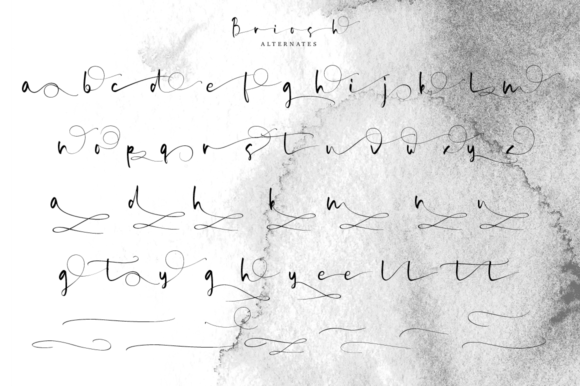 Briosh
ALTERNATES
a b c d e f g h i j k l m
n o p q r s t u v w x y z
a d h k m n u
g t a y g h y e e l l t t